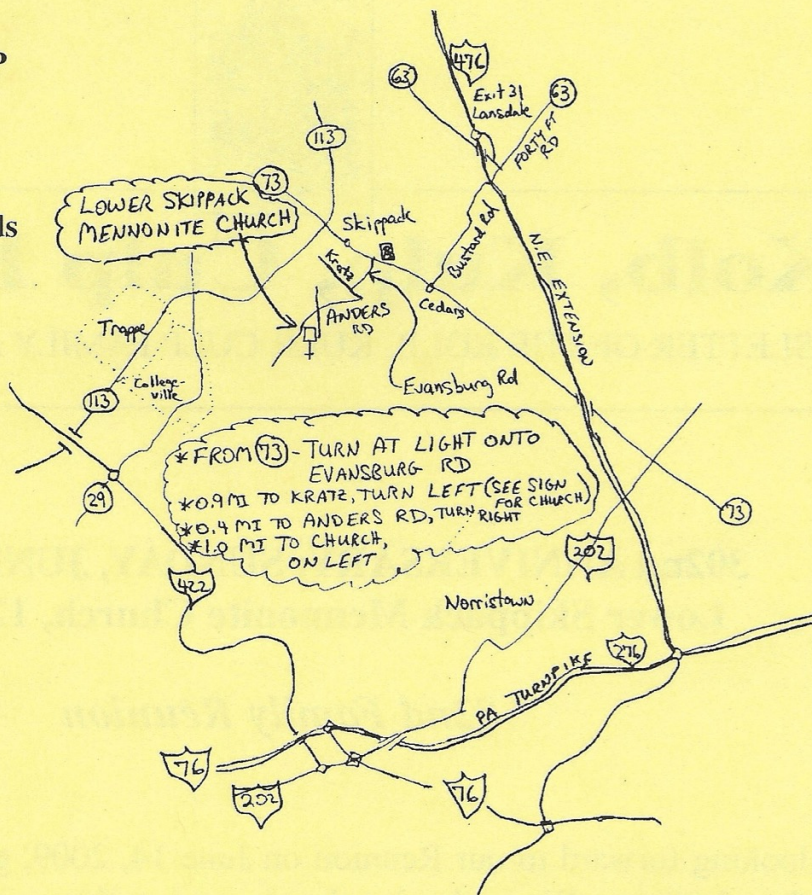 476
63
Exit 31
Lansdale
63
FORTY FT
RD
113
73
LOWER SKIPPACK
MENNONITE CHURCH
ls
Skippack
Bustard Rd
N.E. EXTENSION
Kratz
ANDERS
RD
Cedars
Trappe
Evansburg Rd
College-
ville
113
*FROM 73 - TURN AT LIGHT ONTO
EVANSBURG RD
*0.9 MI TO KRATZ, TURN LEFT (SEE SIGN
FOR CHURCH)
*0.4 MI TO ANDERS RD, TURN
RIGHT
*1.0 MI TO CHURCH,
ON LEFT
29
73
202
422
Norristown
276
PA TURNPIKE
76
202
76